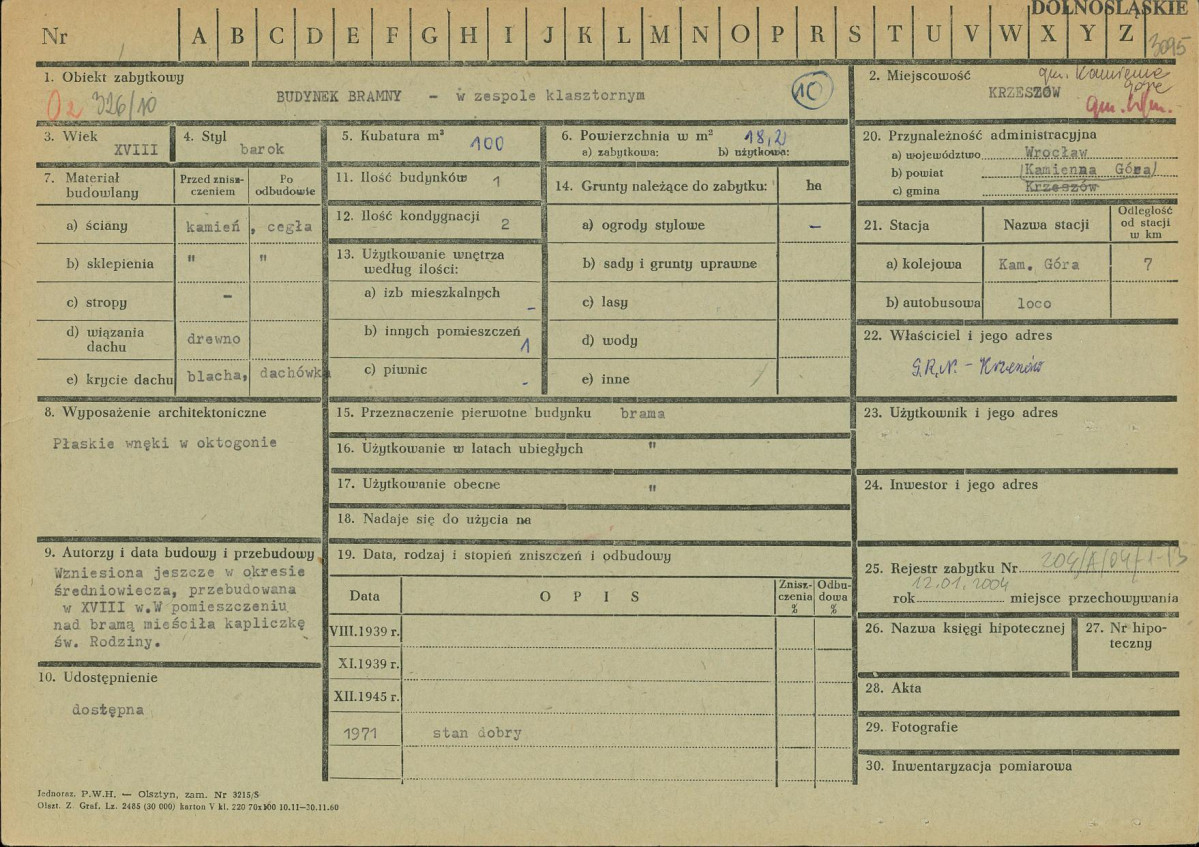 DOLNOŚLĄSKIE
Nr A B C D E F G H I J K L M N O P R S T U V W X Y Z
3095
1. Obiekt zabytkowy
326/10
BUDYNEK BRAMNY - w zespole klasztornym
10
2. Miejscowość
gm. Kamienna Góra
KRZESZÓW
3. Wiek
XVIII
4. Styl
barok
5. Kubatura m³ 100
6. Powierzchnia w m² 18,2
a) zabytkowa: b) użytkowa:
7. Materiał budowlany
Przed zniszczeniem
Po odbudowie
a) ściany kamień, cegła
b) sklepienia " "
c) stropy -
d) wiązania dachu drewno
e) krycie dachu blacha, dachówka
8. Wyposażenie architektoniczne
Płaskie wnęki w oktogonie
9. Autorzy i data budowy i przebudowy
Wzniesiona jeszcze w okresie
średniowiecza, przebudowana
w XVIII w.W pomieszczeniu
nad bramą mieściła kapliczkę
św. Rodziny.
10. Udostępnienie
dostępna
11. Ilość budynków 1
12. Ilość kondygnacji 2
13. Użytkowanie wnętrza
według ilości:
a) izb mieszkalnych -
b) innych pomieszczeń 1
c) piwnic -
14. Grunty należące do zabytku: ha
a) ogrody stylowe -
b) sady i grunty uprawne
c) lasy
d) wody
e) inne
15. Przeznaczenie pierwotne budynku brama
16. Użytkowanie w latach ubiegłych "
17. Użytkowanie obecne "
18. Nadaje się do użycia na
19. Data, rodzaj i stopień zniszczeń i odbudowy
Data O P I S Zniszczenia % Odbudowa %
VIII.1939 r.
XI.1939 r.
XII.1945 r.
1971 stan dobry
20. Przynależność administracyjna
a) województwo Wrocław
b) powiat (Kamienna Góra)
c) gmina Krzeszów
21. Stacja Nazwa stacji Odległość od stacji w km
a) kolejowa Kam. Góra 7
b) autobusowa loco
22. Właściciel i jego adres
G.R.N. - Krzeszów
23. Użytkownik i jego adres
24. Inwestor i jego adres
25. Rejestr zabytku Nr 204/A/04/1-13
12.01.2004
rok miejsce przechowywania
26. Nazwa księgi hipotecznej
27. Nr hipoteczny
28. Akta
29. Fotografie
30. Inwentaryzacja pomiarowa
Jednoraz. P.W.H. — Olsztyn, zam. Nr 3215/S
Olszt. Z. Graf. Lz. 2485 (30 000) karton V kl. 220 70x100 10.11—30.11.60